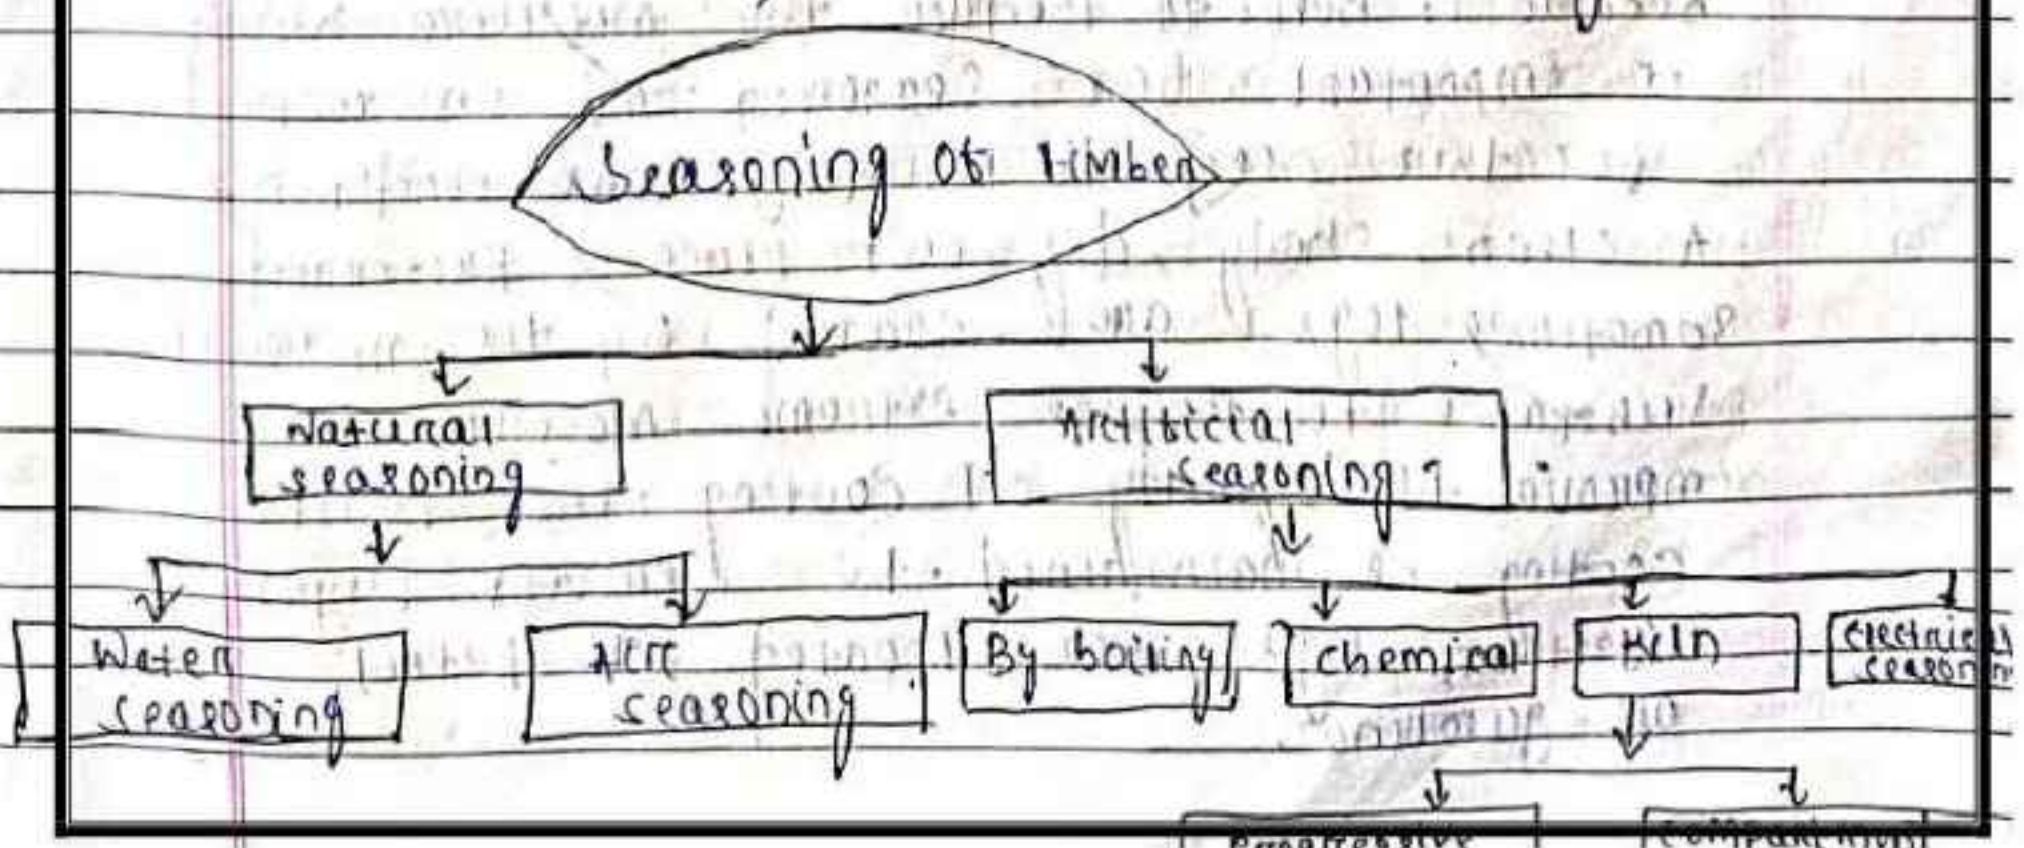 Seasoning of timber
Natural
seasoning
Artificial
seasoning
Water
seasoning
Air
seasoning
By boiling
chemical
Kiln
Electrical
season
Progressive